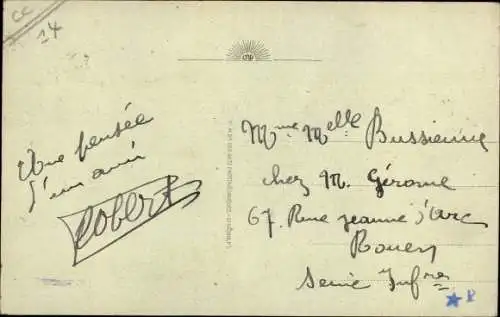 CC
14
Une pensée
d'un ami
Robert
Mme Melle Bussienne
chez M. Gérome
67. Rue Jeanne d'Arc
Rouen
Seine Infre
R